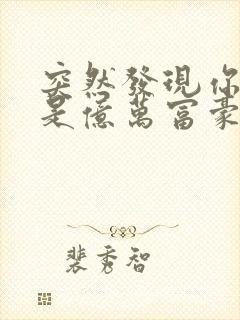 突然發現你
是億萬富豪
裴秀智